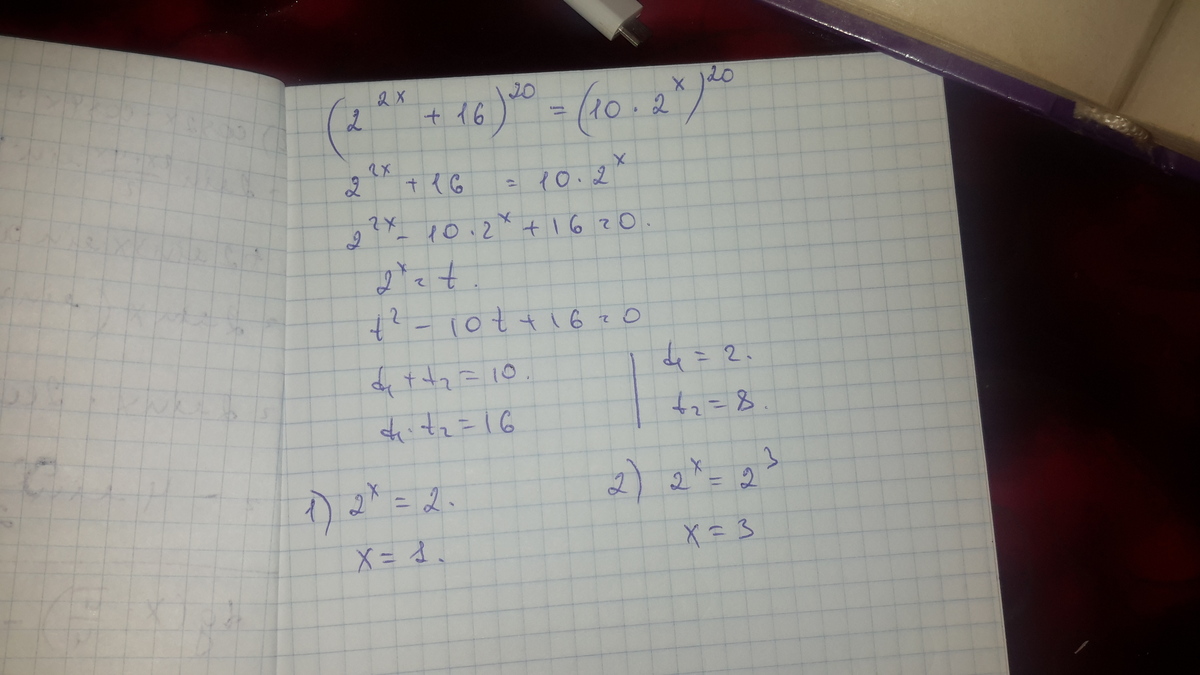 (2^{2x} + 16)^{20} = (10 · 2^x)^{20}
2^{2x} + 16 = 10 · 2^x
2^{2x} - 10 · 2^x + 16 = 0.
2^x = t.
t^2 - 10t + 16 = 0
t_1 + t_2 = 10.
t_1 · t_2 = 16
t_1 = 2.
t_2 = 8.
1) 2^x = 2.
x = 1.
2) 2^x = 2^3
x = 3